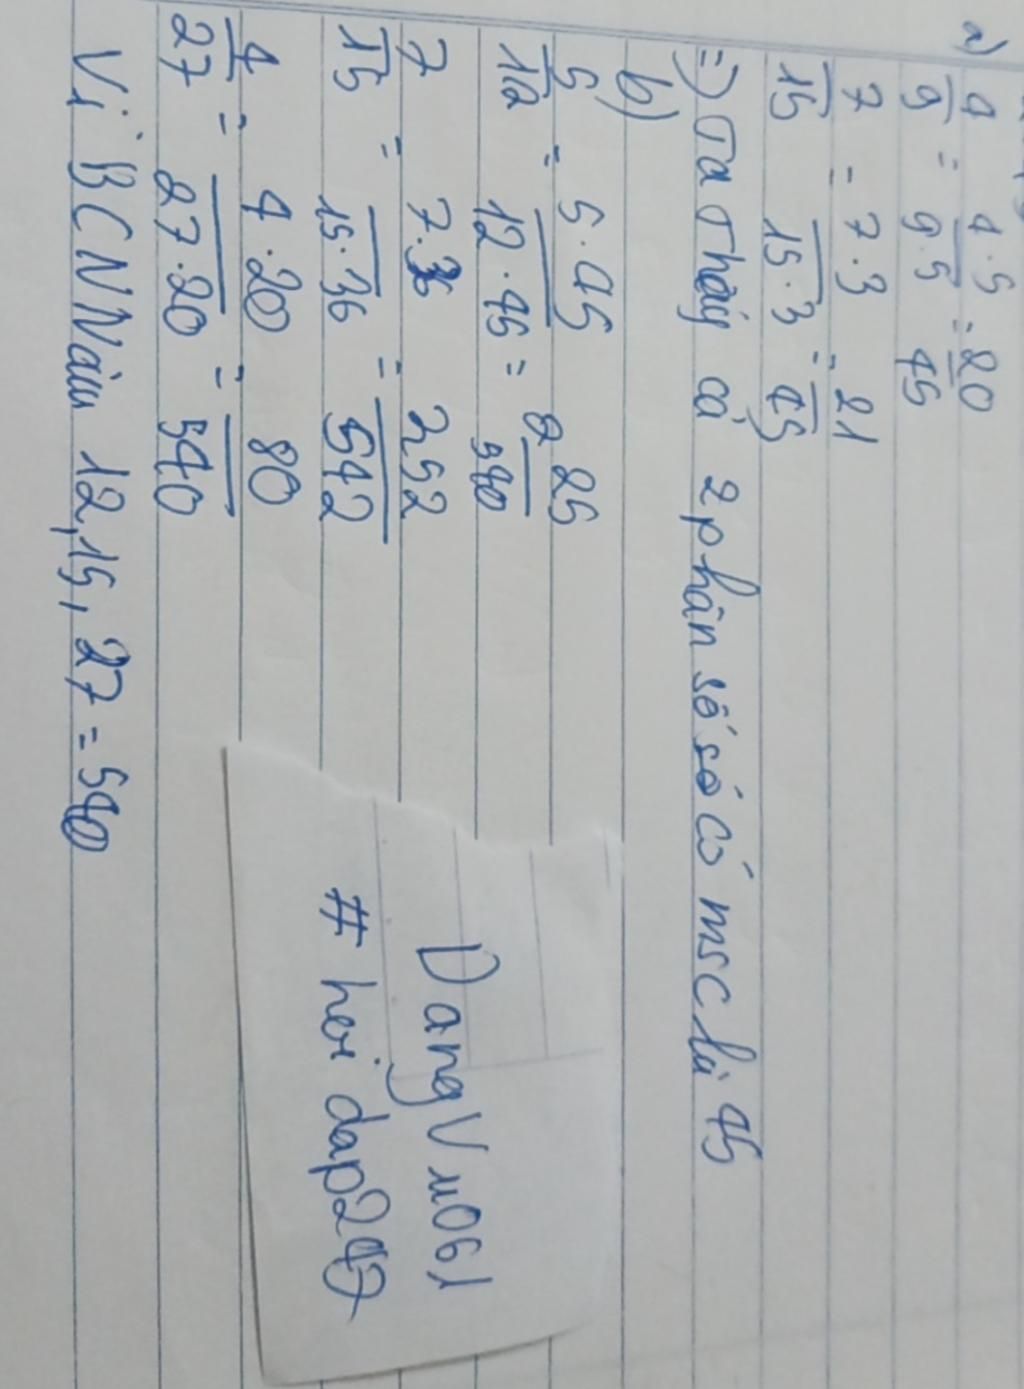 a)
4/9 = 4.5/9.5 = 20/45
7/15 = 7.3/15.3 = 21/45
=) Ta thấy cả 2 phân số số có msc là 45
b)
5/12 = 5.45/12.45 = 225/540
7/15 = 7.36/15.36 = 252/542
4/27 = 4.20/27.20 = 80/540
Vì BCNN của 12,15,27 = 540
DangVu061
# hoi dap247